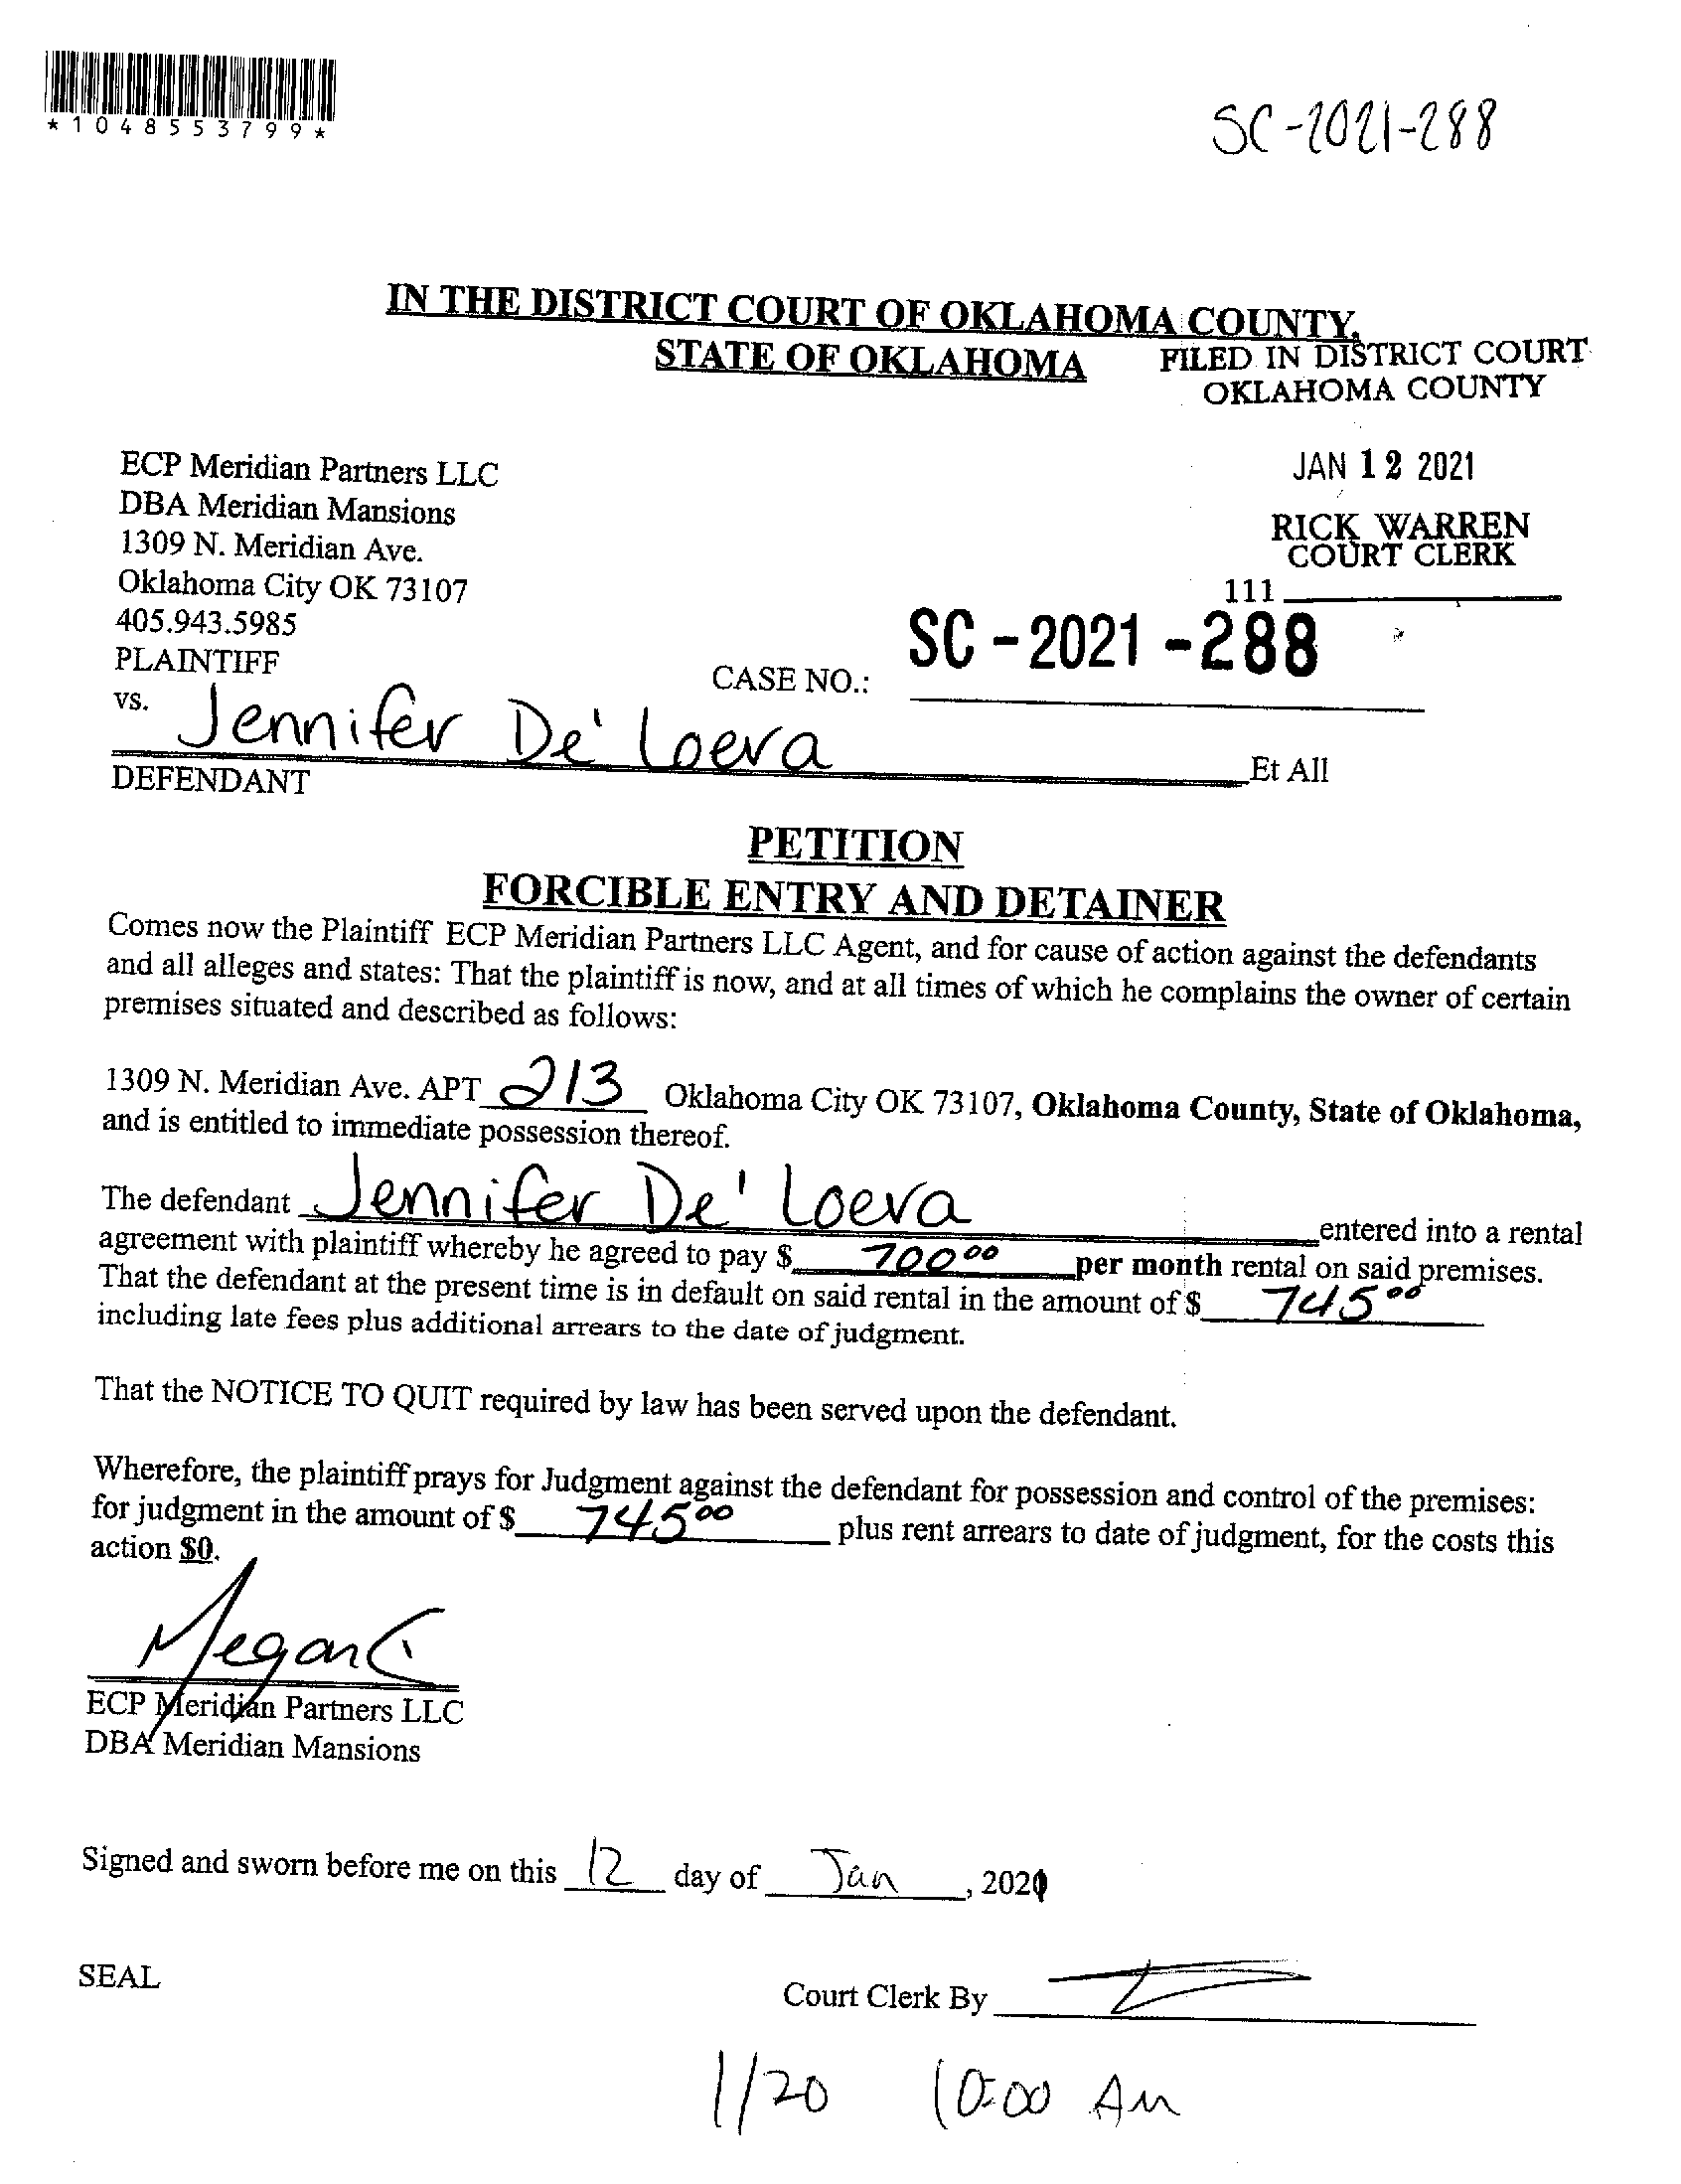 *1048553799*
SC-2021-288
IN THE DISTRICT COURT OF OKLAHOMA COUNTY,
STATE OF OKLAHOMA
FILED IN DISTRICT COURT
OKLAHOMA COUNTY
JAN 12 2021
RICK WARREN
COURT CLERK
111
ECP Meridian Partners LLC
DBA Meridian Mansions
1309 N. Meridian Ave.
Oklahoma City OK 73107
405.943.5985
PLAINTIFF
CASE NO.: SC-2021-288
vs.
Jennifer De' Loera Et All
DEFENDANT
PETITION
FORCIBLE ENTRY AND DETAINER
Comes now the Plaintiff ECP Meridian Partners LLC Agent, and for cause of action against the defendants
and all alleges and states: That the plaintiff is now, and at all times of which he complains the owner of certain
premises situated and described as follows:
1309 N. Meridian Ave. APT 213 Oklahoma City OK 73107, Oklahoma County, State of Oklahoma,
and is entitled to immediate possession thereof.
The defendant Jennifer De' Loera entered into a rental
agreement with plaintiff whereby he agreed to pay $ 700 00 per month rental on said premises.
That the defendant at the present time is in default on said rental in the amount of $ 745 00
including late fees plus additional arrears to the date of judgment.
That the NOTICE TO QUIT required by law has been served upon the defendant.
Wherefore, the plaintiff prays for Judgment against the defendant for possession and control of the premises:
for judgment in the amount of $ 745 00 plus rent arrears to date of judgment, for the costs this
action $0.
Megan
ECP Meridian Partners LLC
DBA Meridian Mansions
Signed and sworn before me on this 12 day of Jan, 2021
SEAL
Court Clerk By
1/20 10:00 AM